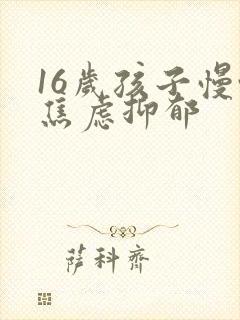 16歲孩子慢
焦虑抑郁
萨科齊